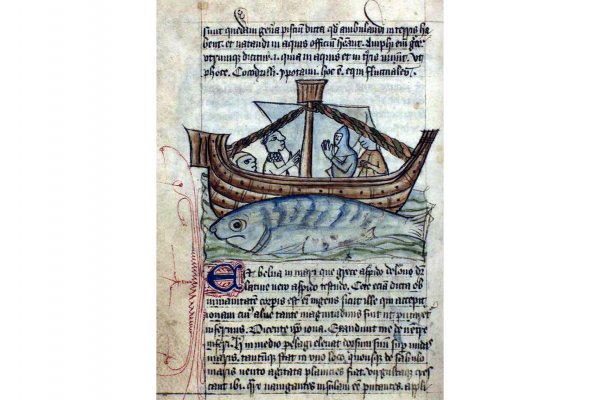 sunt quedam gen̄a pisciū dicta qđ ambulandi in terris ha
bent. et natandi in aquis officiū hn̄t. Amphi em̄ gre
utrumque dicitur .i. quia in aquis et in t̄ris uiuūt. ut
phoce. Cocodrilli. ypotami. hoc ē. equi fluctuales.
Est belua in mari que grece aspido delone dr̄
latine uero aspido testudo. Cete eciā dicta ob
inmanitatem corpis est em̄ ingens sicut ille qui excepit
ionam cui alue tante magnitudinis fuit ut putaret
infernus. Dicente ip̄o iona. Exaudiuit me de uentre
inferi. in medio pelagi eleuat dorsum suum sup undas
maris. tantumque stat in uno loco quousque de sabulo
maris uento agitata planicies fiat. uirgultaque cres
cant ibi. nauigantes insulam eē putantes. appli